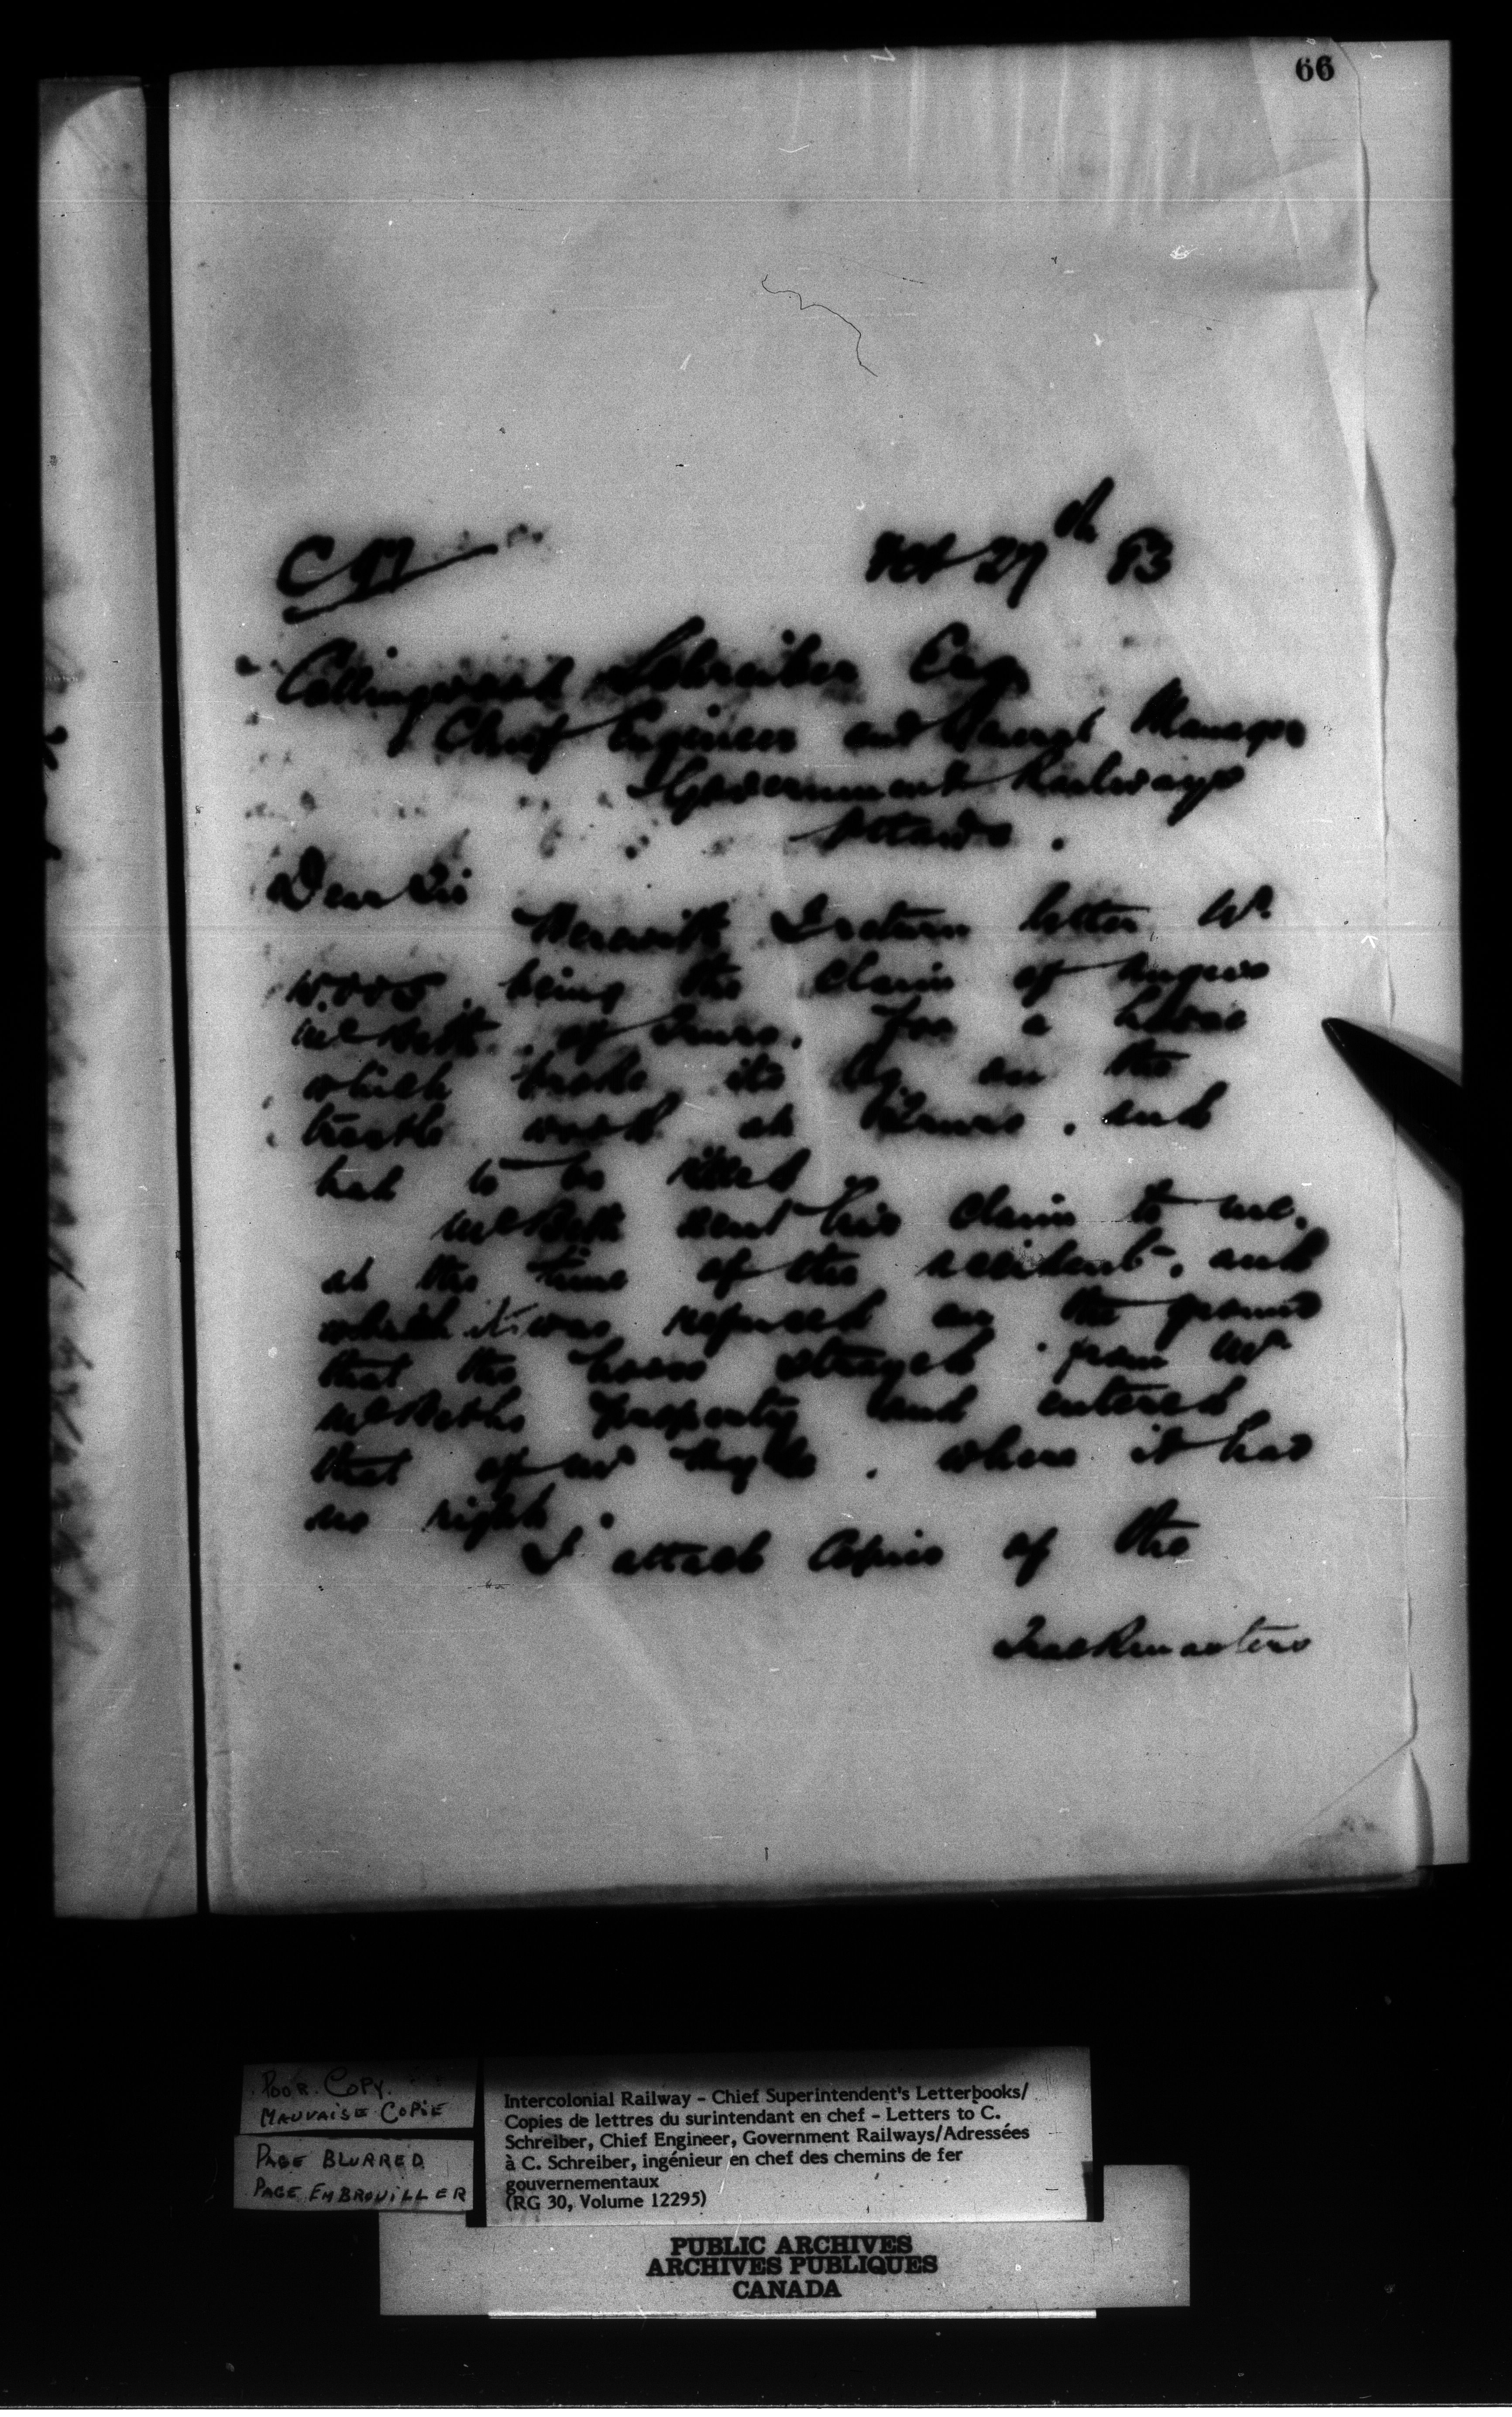 66
Oct 27th 83
Collingwood Schreiber Esq
Chief Engineer and General Manager
Government Railways
Ottawa.
Dear Sir
Herewith I return letter No
being the claim of Angus
McBeth of Truro, for a horse
which broke its leg on the
trestle work at Truro, and
had to be killed
McBeth sent his claim to me,
at the time of the accident, and
which it was refused on the ground
that the horse strayed from Mr
McBeths property and entered
that of Mr where it had
no right.
I attach Copies of the
Trackmasters
POOR COPY.
MAUVAISE COPIE
PAGE BLURRED
PAGE EMBROUILLER
Intercolonial Railway - Chief Superintendent's Letterbooks/
Copies de lettres du surintendant en chef - Letters to C.
Schreiber, Chief Engineer, Government Railways/Adressées
à C. Schreiber, ingénieur en chef des chemins de fer
gouvernementaux
(RG 30, Volume 12295)
PUBLIC ARCHIVES
ARCHIVES PUBLIQUES
CANADA